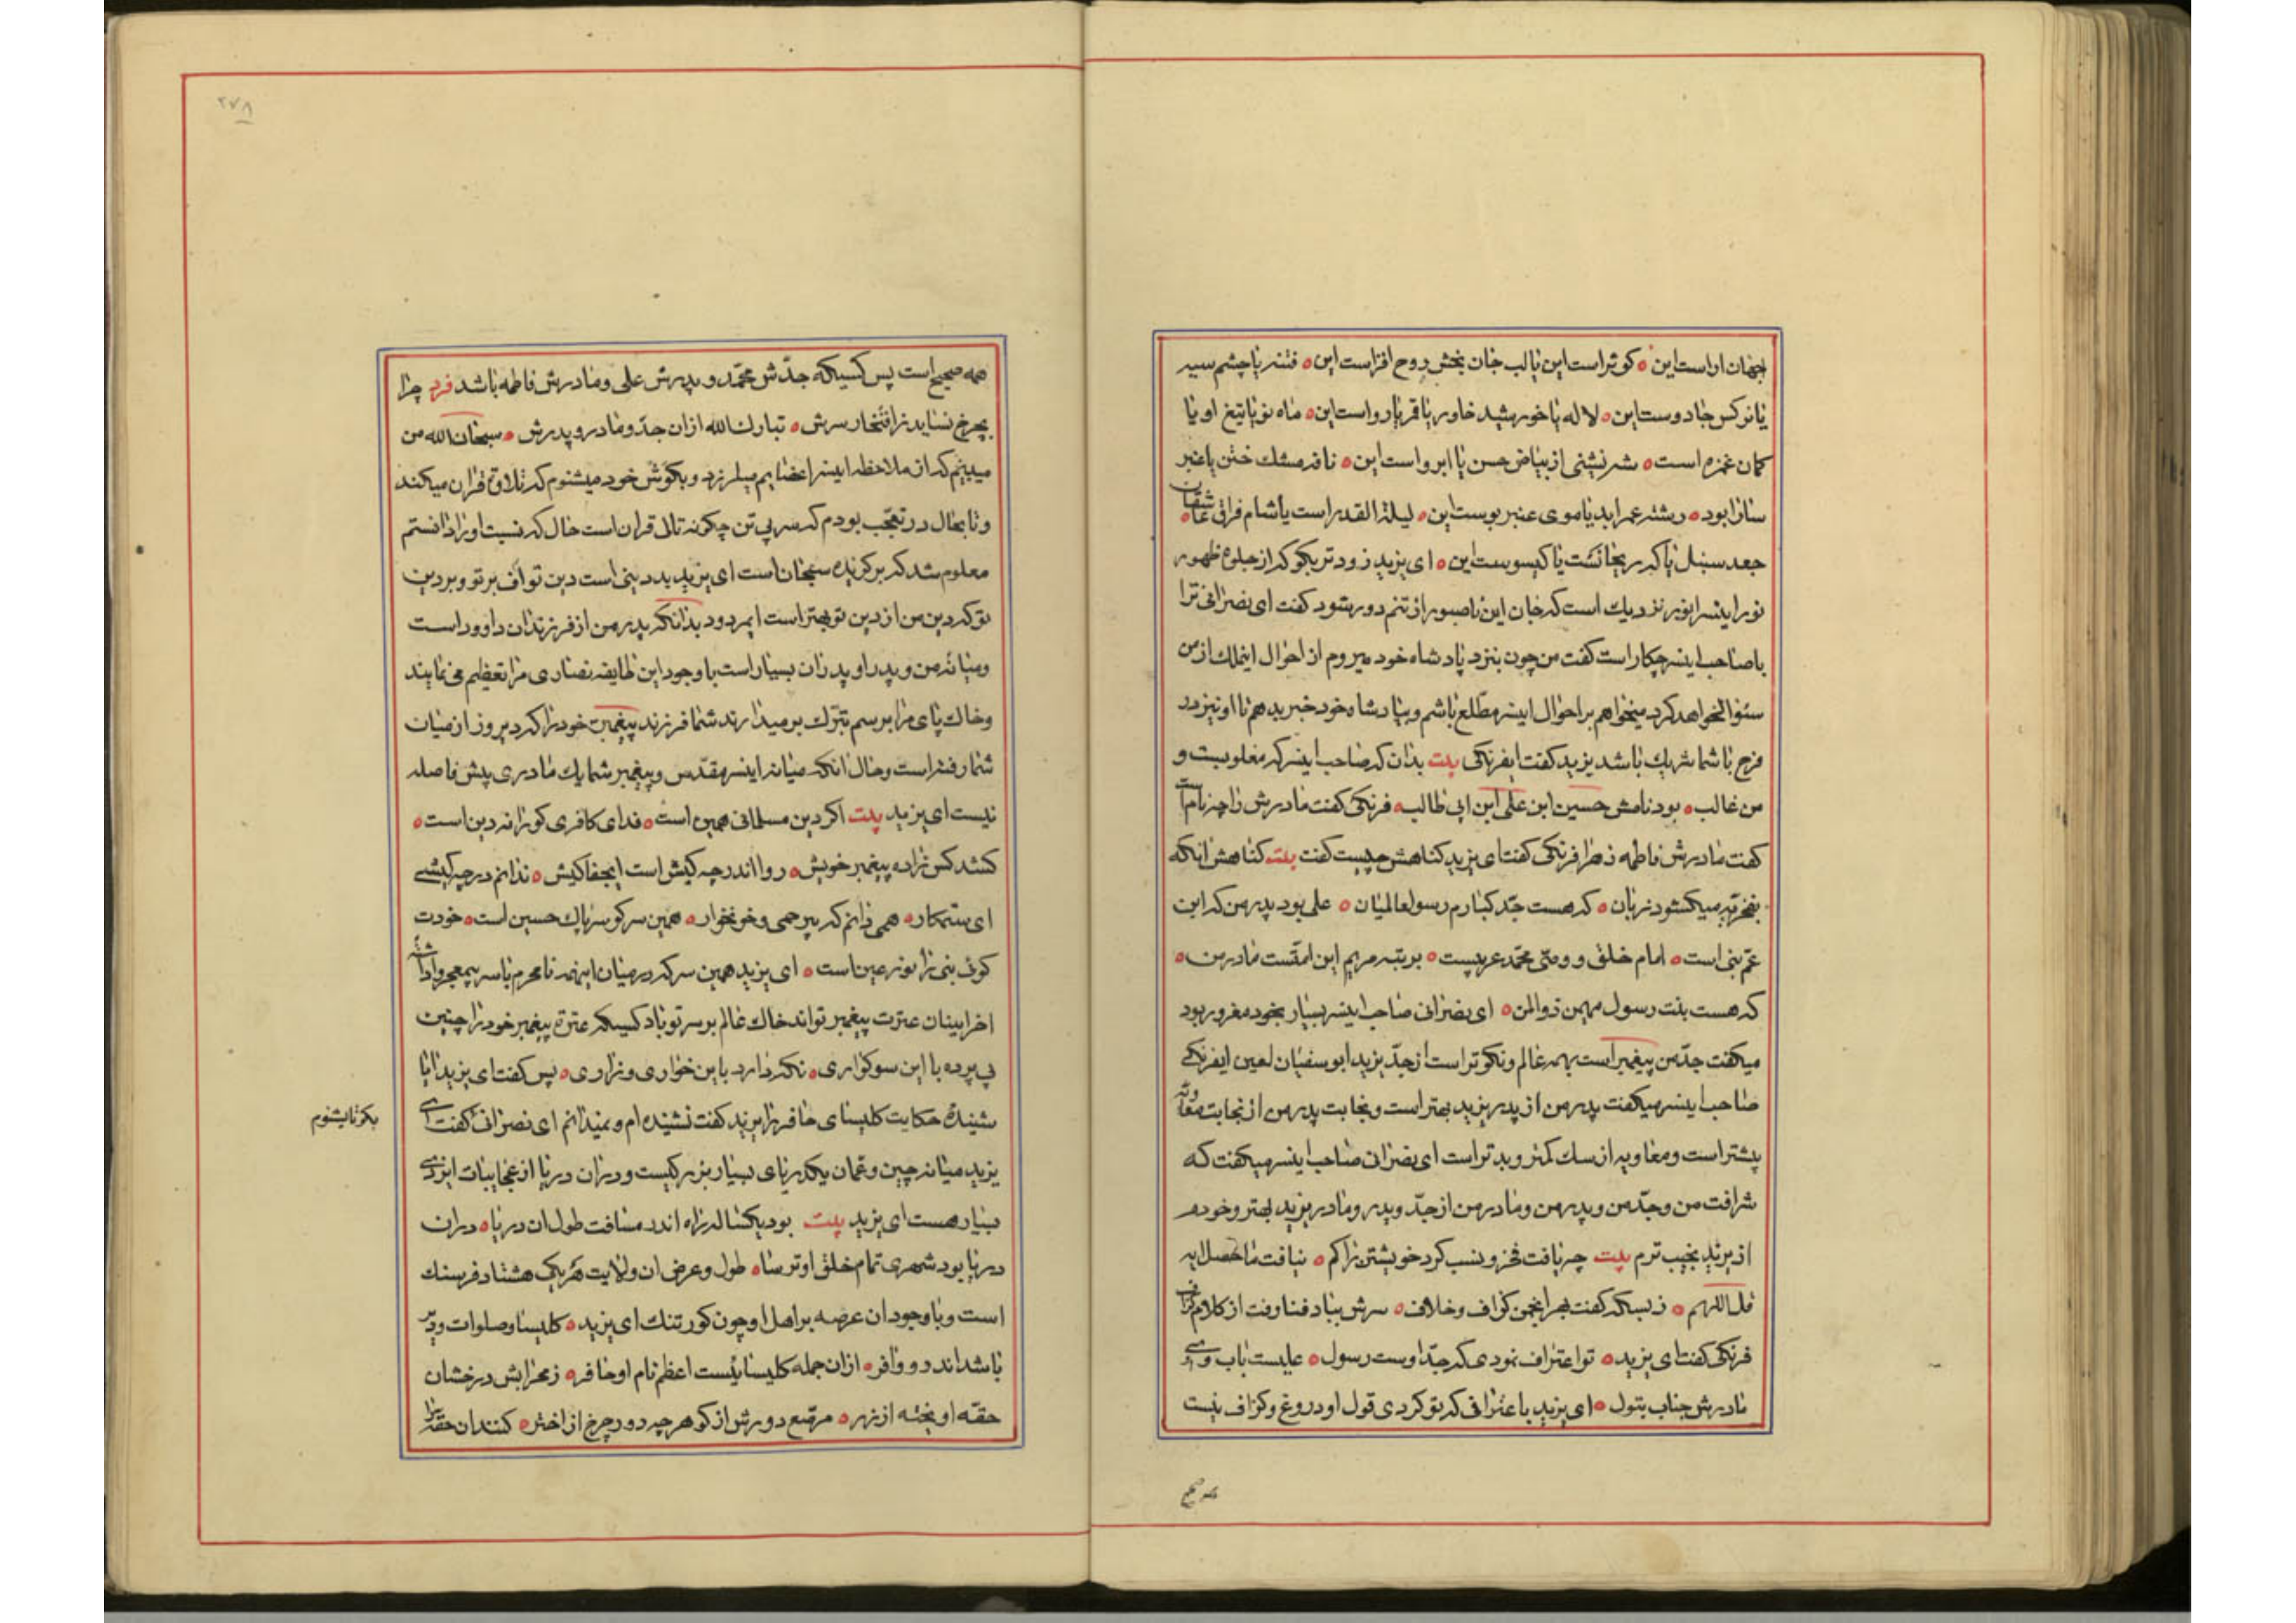 بجهان اراست این ه کوثر است این یا لب جان بخش روح افزاست این ه فتنه یا چشم سیه
یا نرکس جادوست این ه لاله یا خورشید خاور یا قمر یا رواست این ه ماه نو یا تیغ او یا
کمان غمزه است ه شه نشینی از بیاض حسن یا ابرواست این ه نافه مشک ختن یا عنبر
سارا بود ه رشته عمر ابد یا موی عنبر بوست این ه لیلة القدر است یا شام فراق عاشقان ه
جعد سنبل یا که ریحانست یا کیسوست این ه ای یزید زود تر بکو که از جلوه ظهور
نور اینسر انور نزدیک است که جان این ناصبور از تنم دور شود کفت ای نصرانی ترا
با صاحب اینسر چکار است کفت من چون بنزد پادشاه خود میروم از احوال اینملک از من
سئوال خواهد کرد میخواهم بر احوال اینسر مطلع باشم و بپادشاه خود خبر بدهم تا او نیز در
فرح با شما شریک باشد یزید کفت ایفرنکی بیت بدان که صاحب اینسر که مغلوبست و
من غالب ه بود نامش حسین ابن علی ابن ابی طالب ه فرنکی کفت مادرش را چه نام است
کفت مادرش فاطمه زهرا فرنکی کفت ای یزید کناهش چیست کفت بیت کناهش انکه
بفخریه میکشود زبان ه که هست جد کبارم رسول عالمیان ه علی بود پدر من که ابن
عم نبی است ه امام خلق و وصی محمد عربیست ه بر تبه مریم این امتست مادر من ه
که هست بنت رسول مهیمن ذوالمن ه ای نصرانی صاحب اینسر بسیار بخود مغرور بود
میکفت جد من پیغمبر است بهمه عالم و نکوتر است از جد یزید ابوسفیان لعین ایفرنکی
صاحب اینسر میکفت پدر من از پدر یزید بهتر است و نجابت پدر من از نجابت معاویه
بیشتر است و معاویه از سک کمتر و بدتر است ای نصرانی صاحب اینسر میکفت که
شرافت من و جد من و پدر من و مادر من از جد و پدر و مادر یزید بهتر و خودم
از یزید نجیب ترم بیت چه یافت فخر و نسب کرد خویشتن را کم ه نیافت ماحصل ایه
قل اللهم ه ز بسکه کفت بهر انجمن کزاف و خلاف ه سرش بباد فنا رفت از کلام کزاف
فرنکی کفت ای یزید ه تو اعتراف نمودی که جد اوست رسول ه علیست باب وی و
مادرش جناب بتول ه ای یزید با عترافی که تو کردی قول او دروغ و کزاف نیست
همه صحیح
۲۷۸
همه صحیح است پس کسیکه جدش محمد و پدرش علی و مادرش فاطمه باشد فرد چرا
بچرخ نساید ز افتخار سرش ه تبارک الله ازان جد و مادر و پدرش ه سبحان الله من
میبینم که از ملاحظه اینسر اعضایم میلرزد و بکوش خود میشنوم که تلاوة قران میکند
و تا بحال در تعجب بودم که سر بی تن چکونه تالی قران است حال که نسبت او را دانستم
معلوم شد که بر کزیده سبحان است ای یزید بد دینی است دین تو اف بر تو و بر دین
تو که دین من از دین تو بهتر است ایمردود بدانکه پدر من از فرزندان داوود است
و میانه من و پدر او پدران بسیار است با وجود این طایفه نصاری مرا تعظیم می نمایند
و خاک پای مرا برسم تبرک بر میدارند شما فرزند پیغمبرت خود را که دیروز از میان
شما رفته است و حال انکه میانه اینسر مقدس و پیغمبر شما یک مادری بیش فاصله
نیست ای یزید بیت اکر دین مسلمانی همین است ه فدای کافری کورا نه دین است ه
کشد کس زاده پیغمبر خویش ه روا اندر چه کیش است ایجفا کیش ه ندانم در چه کیشی
ای ستمکار ه همی دانم که بیرحمی و خونخوار ه همین سر کو سر پاک حسین است ه خودت
کوئی نبی را نور عین است ه ای یزید همین سر که در میان اینهمه نامحرم با سر بیمعجر واداشته
اخر اینان عترت پیغمبر تواند خاک عالم بر سر تو باد کسیکه عترة پیغمبر خود را چنین
بی پرده با این سوکواری ه نکه دارد باین خواری و زاری ه پس کفت ای یزید ایا
شنیدهٔ حکایت کلیسای حافر را یزید کفت نشنیده ام و نمیدانم ای نصرانی کفت ای
بکو تا بشنوم
یزید میانه چین و عمان یکدریای بسیار بزرکیست و در ان دریا از عجایبات ایزدی
بسیار هست ای یزید بیت بود یکساله راه اندر مسافت طول ان دریا ه در ان
دریا بود شهری تمام خلق او ترسا ه طول و عرض ان ولایت هر یک هشتاد فرسنک
است و با وجود ان عرصه بر اهل او چون کور تنک ای یزید ه کلیسا و صلوات و دیر
باشد اندر و وافر ه ازان جمله کلیسائیست اعظم نام او حافر ه ز محرابش درخشان
حقه اویخته از زر ه مرصع دورش از کوهر چه دور چرخ از اختر ه کنند ان حقه را